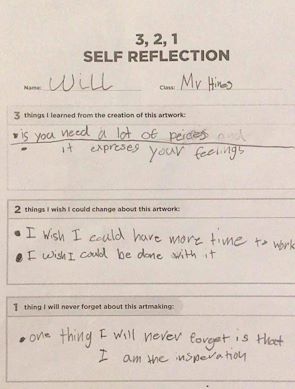 3, 2, 1
SELF REFLECTION
Name: Will Class: Mr Hines
3 things I learned from the creation of this artwork:
• is you need a lot of peices and
• it expreses your feelings
2 things I wish I could change about this artwork:
• I wish I could have more time to work
• I wish I could be done with it
1 thing I will never forget about this artmaking:
• one thing I will never forget is that
I am the insperation